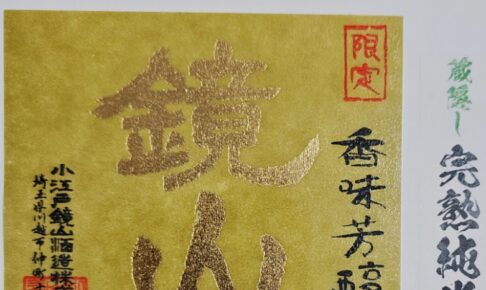 蔵隠し
完熟純米
限定
香味芳醇
鏡山
小江戸鏡山酒造株
埼玉県川越市仲町